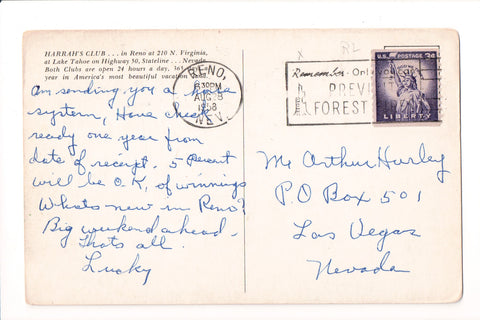 HARRAH'S CLUB . . . in Reno at 210 N. Virginia,
at Lake Tahoe on Highway 50, Stateline . . . Nevada
Both Clubs are open 24 hours a day, 365
year in America's most beautiful vacation
RENO,
30 PM
AUG 28
1958
NEV.
Remember- Only you
PREV
FOREST
U.S. POSTAGE 3¢
LIBERTY
am sending you a
system, Have check
ready one year from
date of receipt. 5 Percent
will be O.K. of winnings
Whats new in Reno?
Big weekend ahead.
Thats all.
Lucky
Mr Arthur Hurley
P.O Box 501
Las Vegas
Nevada